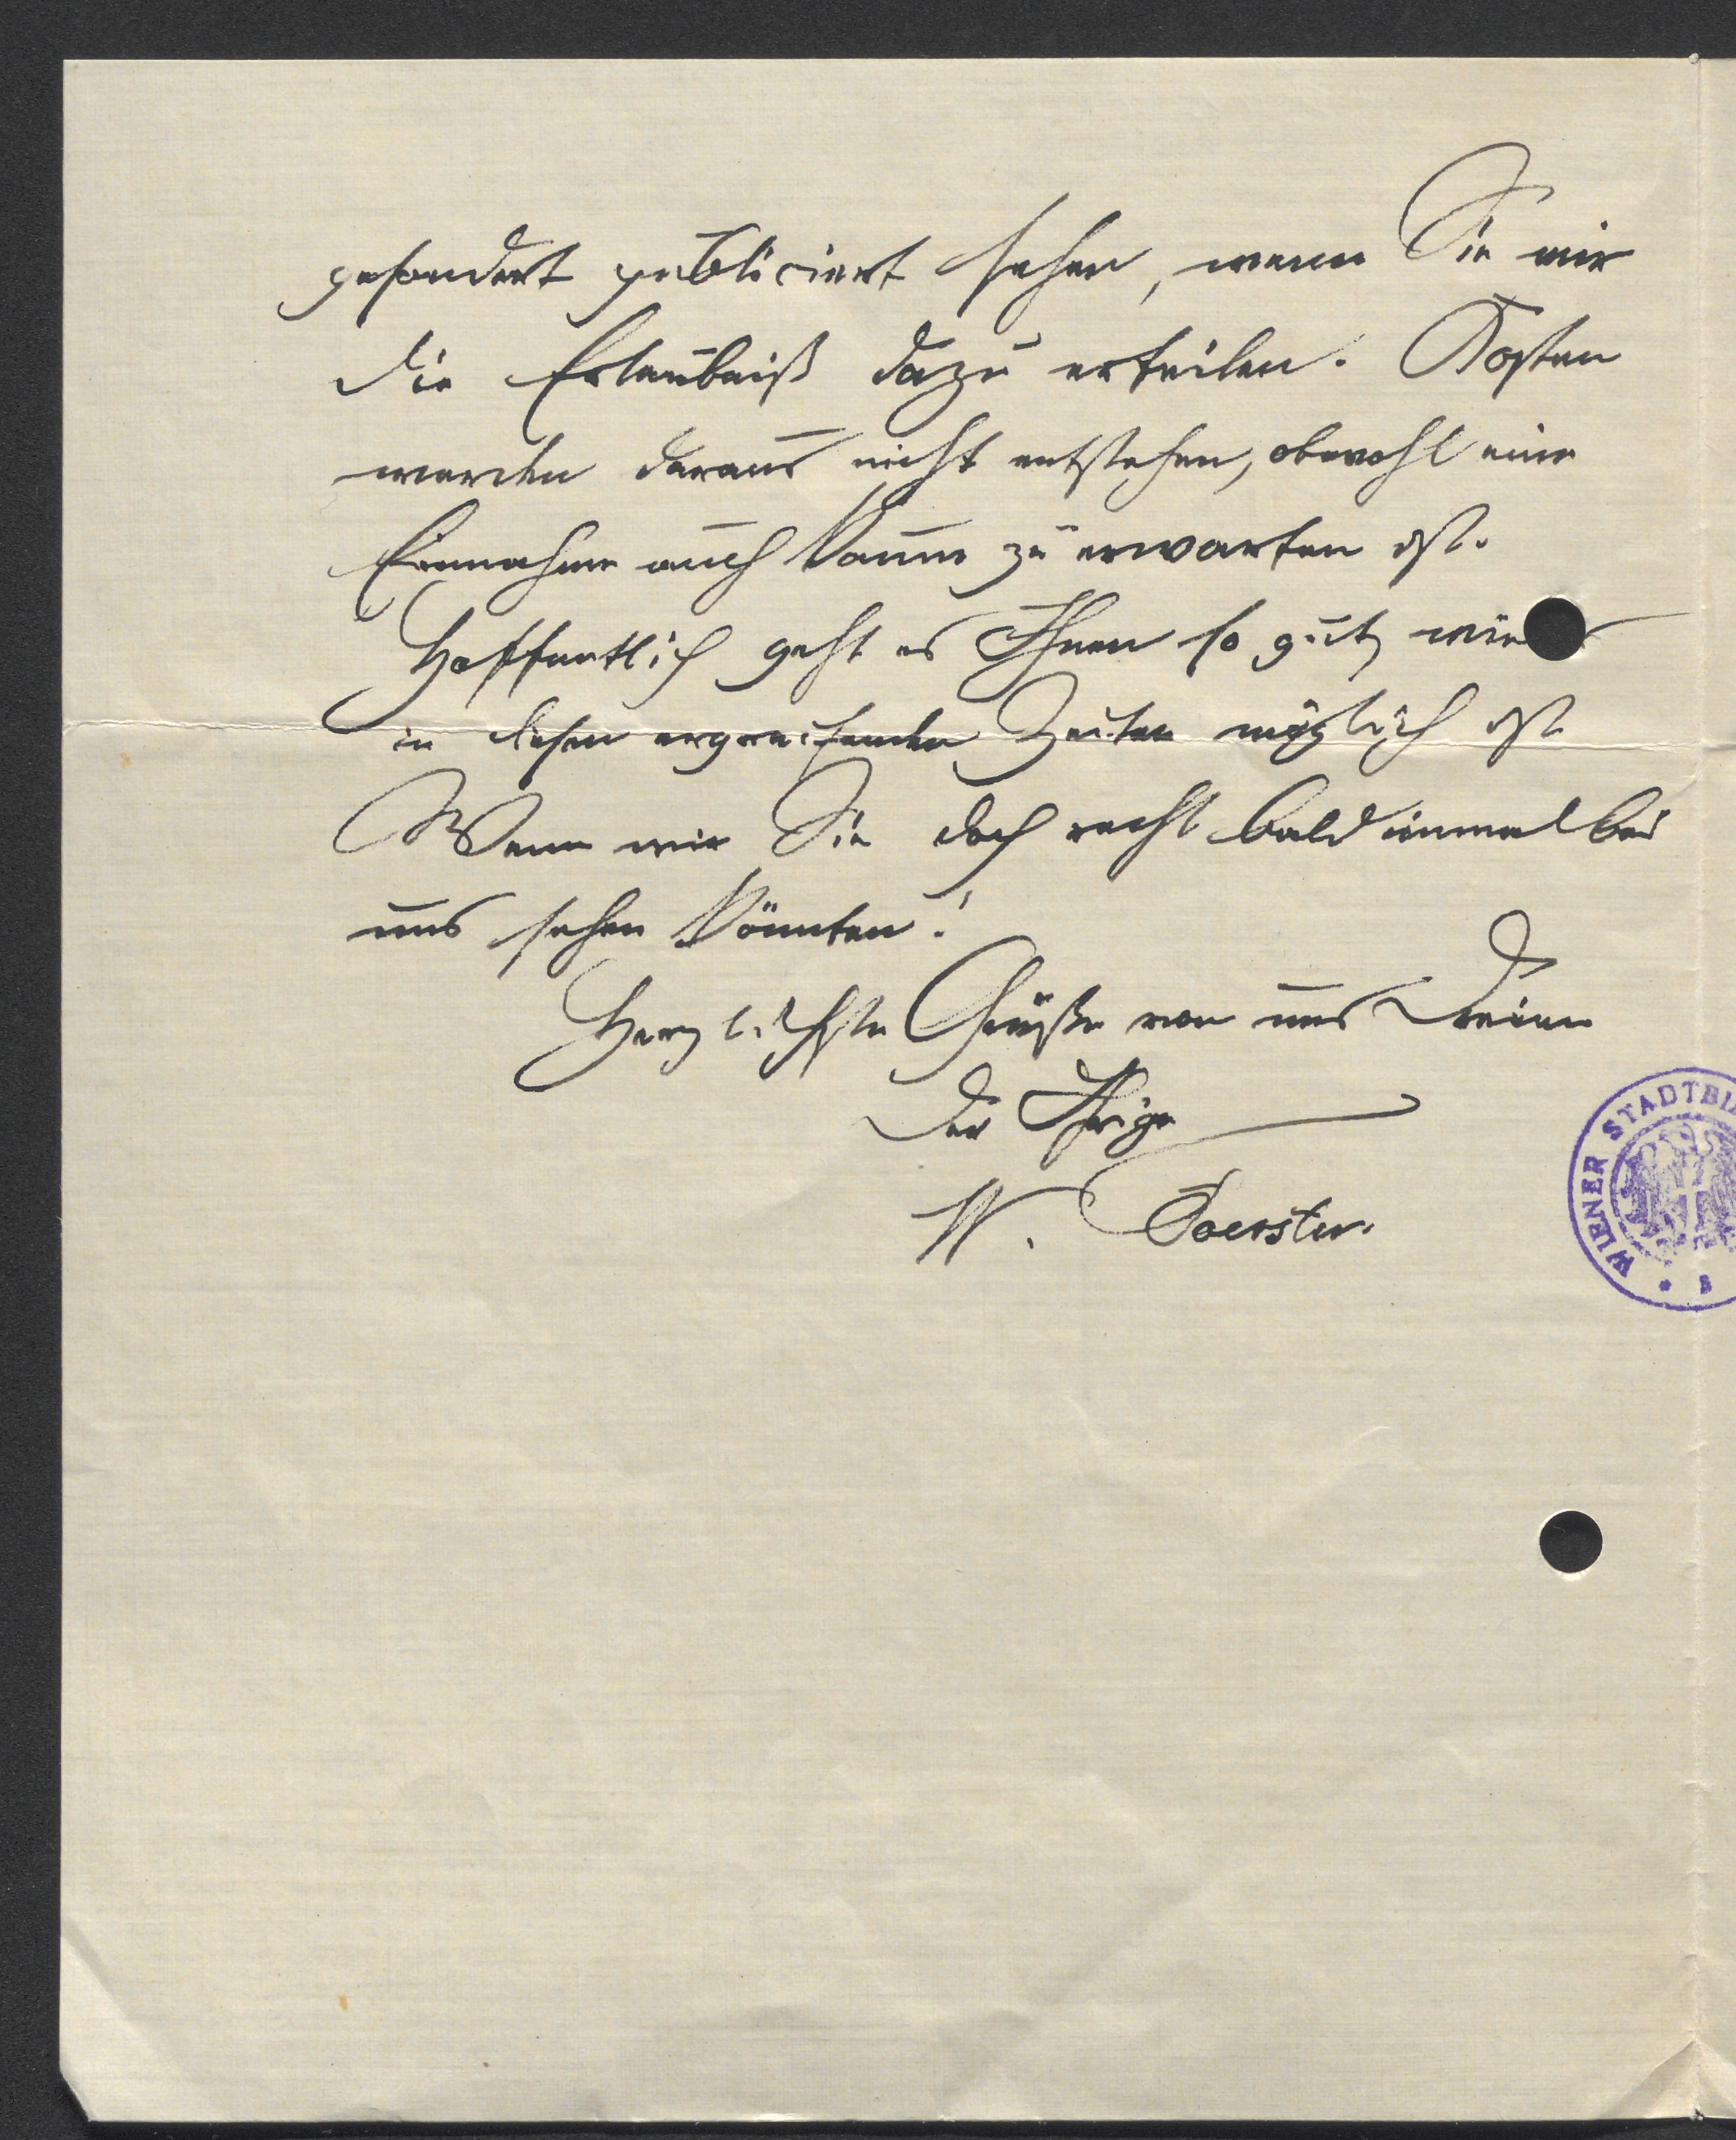 gesondert publiciert sehen, wenn Sie mir
die Erlaubniß dazu erteilen. Kosten
werden daraus nicht entstehen, obwohl eine
Einnahme auch kaum zu erwarten ist.
Hoffentlich geht es Ihnen so gut, wie
in diesen ergreifenden Zeiten möglich ist.
Wenn wir Sie doch recht bald einmal bei
uns sehen könnten!
Herzlichste Grüße von uns Dreien
der Ihrige
W. Foerster.
WIENER STADTBI